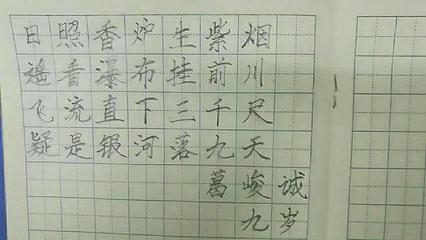 日照香炉生紫烟
遥看瀑布挂前川
飞流直下三千尺
疑是银河落九天
葛峻诚
九岁